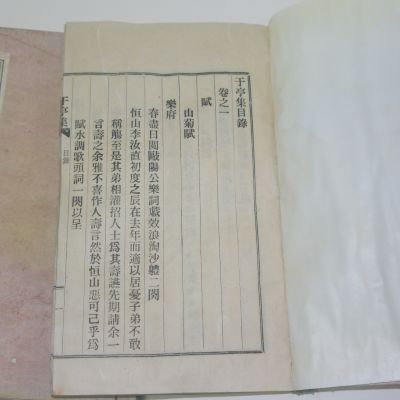 于亭集目錄
卷之一
賦
山菊賦
樂府
春盡日閱歐陽公樂詞戲效浪淘沙體二闋
恒山李汝直初度之辰在去年而適以居憂子弟不敢
稱觴至是其弟相灌招人士爲其壽讌先期請余一
言壽之余雅不喜作人壽言然於恒山惡可已乎爲
賦水調歌頭詞一闋以呈
于亭集
目錄